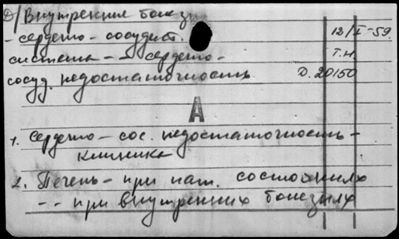 Внутренние болезни
- сердечно - сосудист. 12/I-59
система - сердечно - Т.Н.
сосуд. недостаточность Д. 20150
А
1. Сердечно - сос. недостаточность -
клиника
2. Печень - при пат. состояниях
-"- при внутренних болезнях